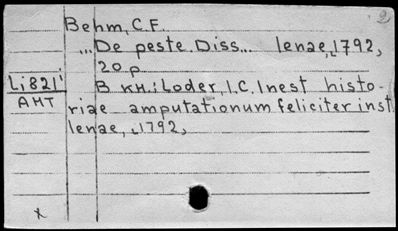 2
Behm, C.F.
... De peste. Diss... Ienae, 1792,
20 p
Li 821 i
AMT
В кн.: Loder, I.C. Inest histo-
riae amputationum feliciter inst
Ienae, 1792,
x